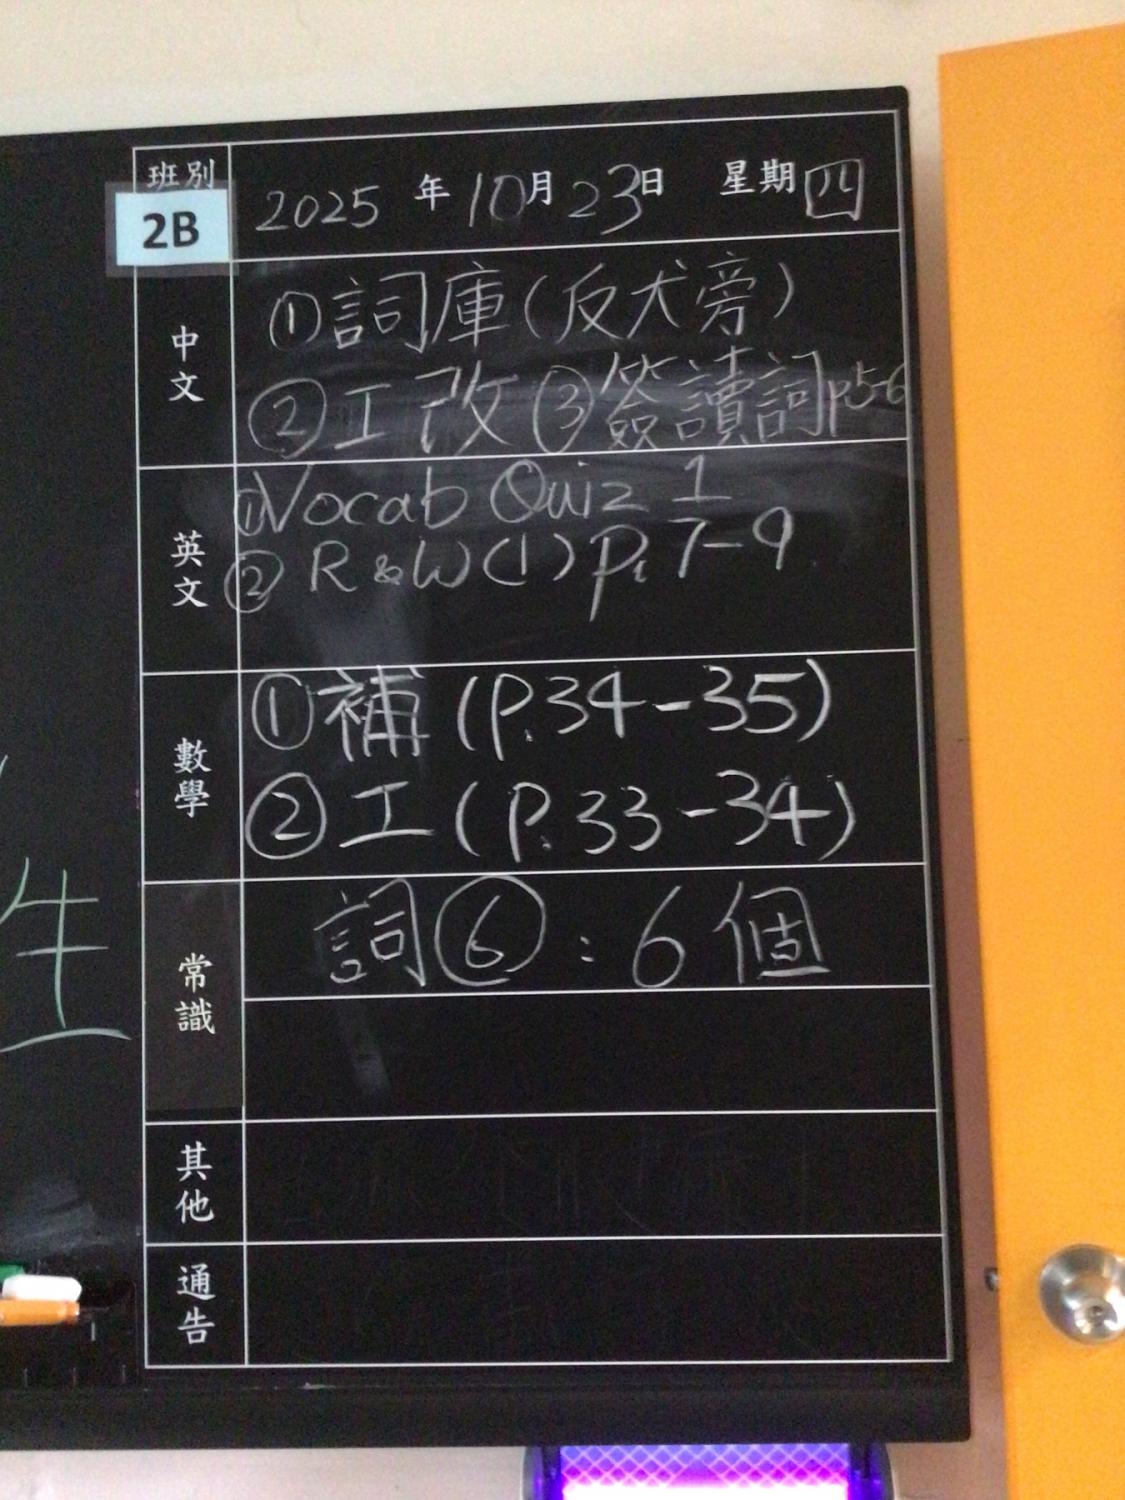 班別
2B
2025年10月23日 星期四
中文
①詞庫(反犬旁)
②工改③簽讀詞p5-6
英文
①Vocab Quiz 1
②R&W(1)P.7-9
數學
①補(P.34-35)
②工(P.33-34)
常識
詞⑥:6個
其他
通告
生